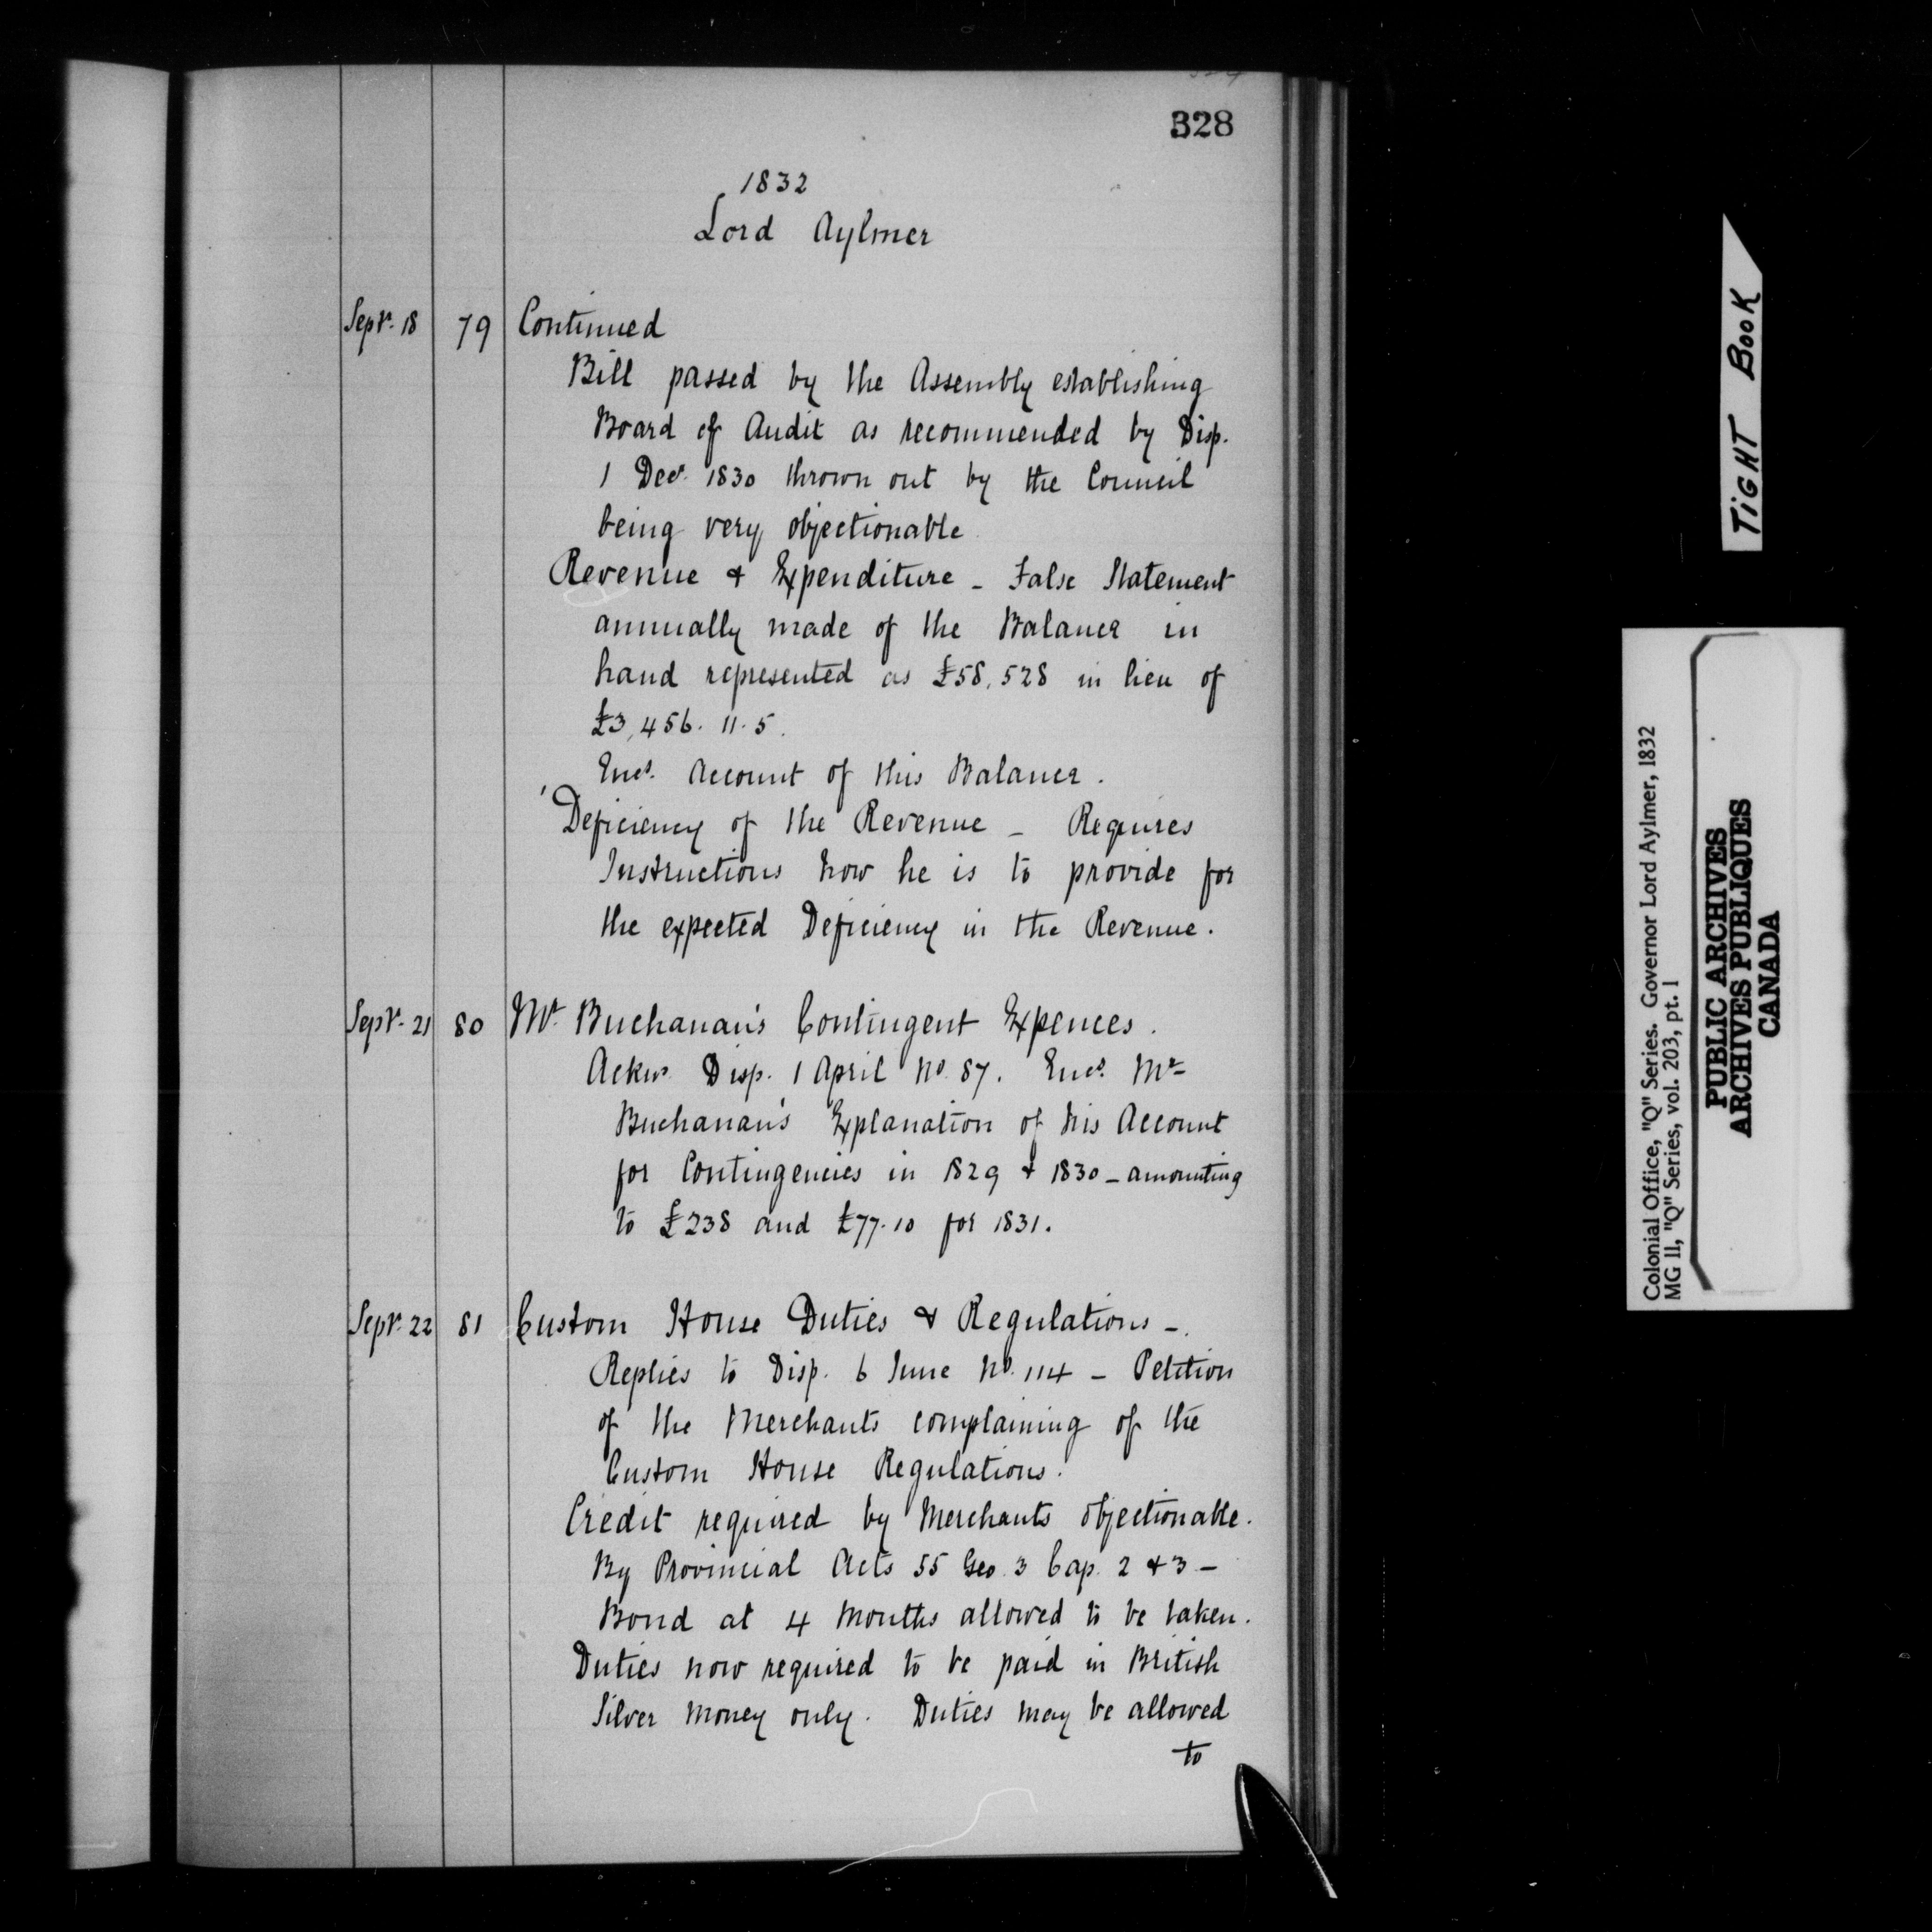 328
1832
Lord Aylmer
Septr. 18 79 Continued
Bill passed by the Assembly establishing
Board of Audit as recommended by Disp.
1 Decr. 1830 thrown out by the Council
being very objectionable
Revenue & Expenditure - False Statement
annually made of the Balance in
hand represented as £58,528 in lieu of
£3,456. 11. 5.
Encs. Account of this Balance.
Deficiency of the Revenue - Requires
Instructions how he is to provide for
the expected Deficiency in the Revenue.
Septr. 21 80 Mr. Buchanan's Contingent Expences.
Ackns. Disp. 1 April No. 87. Encs. Mr
Buchanan's Explanation of his Account
for Contingencies in 1829 & 1830 - amounting
to £238 and £77.10 for 1831.
Septr. 22 81 Custom House Duties & Regulations -.
Replies to Disp. 6 June No. 114 - Petition
of the Merchants complaining of the
Custom House Regulations.
Credit required by Merchants objectionable.
By Provincial Acts 55 Geo. 3 Cap. 2 & 3 -
Bond at 4 Months allowed to be taken.
Duties now required to be paid in British
Silver Money only. Duties may be allowed
to
TIGHT BOOK
Colonial Office, "Q" Series. Governor Lord Aylmer, 1832
MG 11, "Q" Series, vol. 203, pt. 1
PUBLIC ARCHIVES
ARCHIVES PUBLIQUES
CANADA